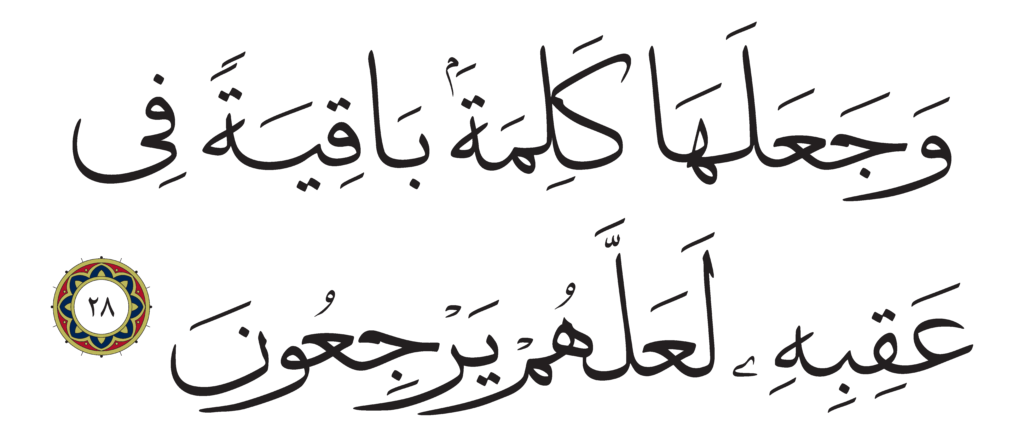 وَجَعَلَهَا كَلِمَةَۢ بَاقِيَةً فِى
عَقِبِهِۦ لَعَلَّهُمْ يَرْجِعُونَ ٢٨